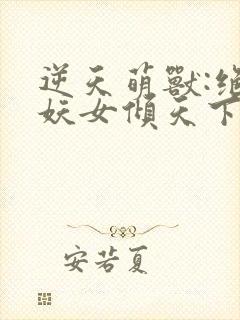 逆天萌獸:絕
妖女傾天下
安若夏